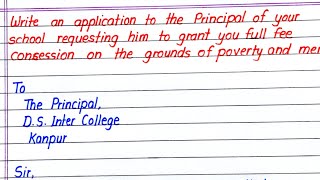 Write an application to the Principal of your
school requesting him to grant you full fee
ConSession on the grounds of poverty and
To
The Principal,
D.S. Inter College
Kanpur
Sir,